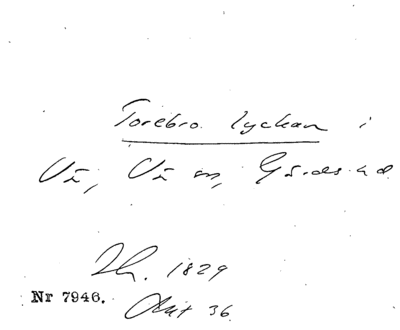 Torebro lyckan i
Vä, Vä sn, Gärds hd
Lh. 1829
Nr 7946.
Akt 36